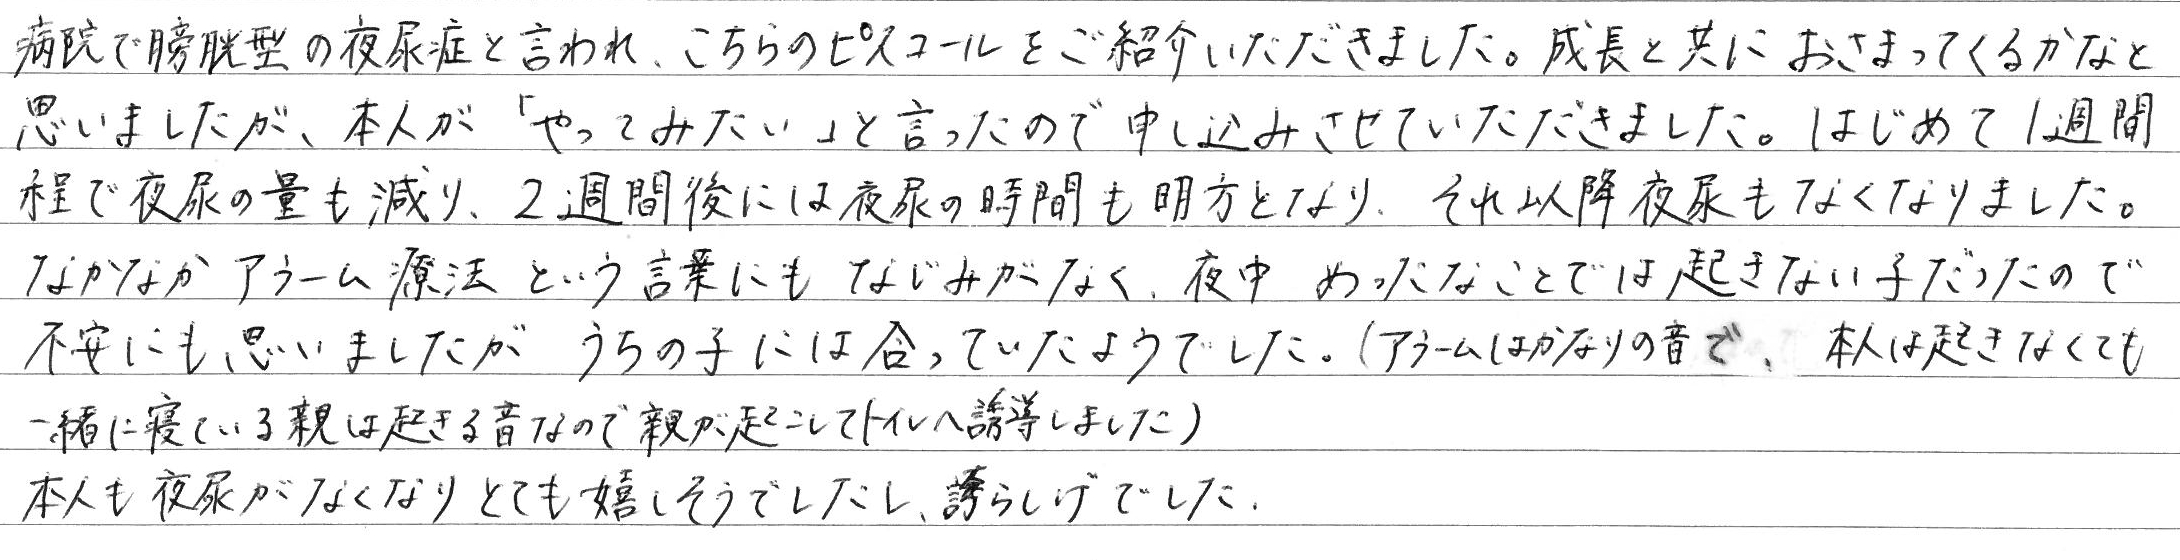 病院で膀胱型の夜尿症と言われ、こちらのピスコールをご紹介いただきました。成長と共におさまってくるかなと
思いましたが、本人が「やってみたい」と言ったので申し込みさせていただきました。はじめて1週間
程で夜尿の量も減り、2週間後には夜尿の時間も明方となり、それ以降夜尿もなくなりました。
なかなかアラーム療法という言葉にもなじみがなく、夜中めったなことでは起きない子だったので
不安にも思いましたがうちの子には合っていたようでした。(アラームはかなりの音で、本人は起きなくても
一緒に寝ている親は起きる音なので親が起こしてトイレへ誘導しました)
本人も夜尿がなくなりとても嬉しそうでしたし、誇らしげでした.